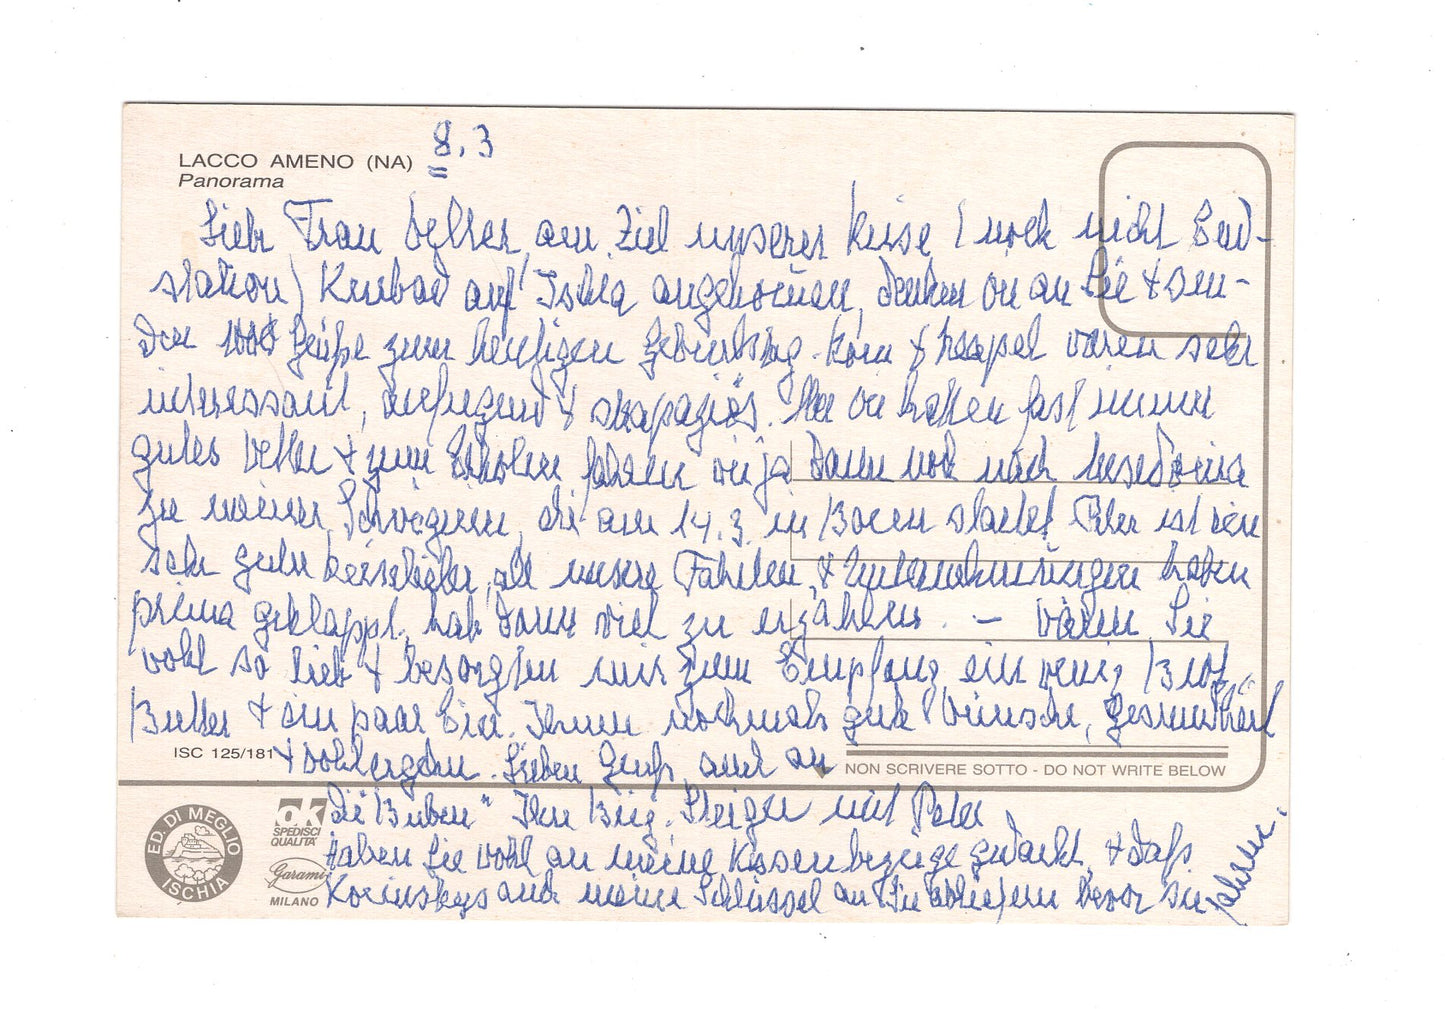 LACCO AMENO (NA)
Panorama
8.3
Liebe Frau am Ziel unserer Reise (noch nicht End-
station) Kurbad auf Ischia angekommen, denken wir an Sie + sen-
den 1000 Grüße zum heutigen Geburtstag. Rom + Neapel waren sehr
interessant, aufregend + strapaziös. Aber wir hatten fast immer
gutes Wetter + zum Erholen fahren wir ja dann noch nach
zu meiner Schwägerin, die am 14.3. in Bozen startet. Peter ist ein
sehr guter Reiseleiter, all unsere Fahrten + Unternehmungen haben
prima geklappt, hab dann viel zu erzählen. — Wären Sie
wohl so lieb + besorgten mir zum Empfang ein wenig Brot,
Butter + ein paar Eier. Ihnen nochmals gute Wünsche, Gesundheit
ISC 125/181 + Wohlergehn. Lieben Gruß auch an
NON SCRIVERE SOTTO - DO NOT WRITE BELOW
die Buben" Ihre Brig. Steiger mit Peter
Haben Sie wohl an meine Kissenbezüge gedacht, + daß
Korinskys auch meine Schlüssel an Sie abliefern bevor sie
fahren.
ED. DI MEGLIO
ISCHIA
OK
SPEDISCI
QUALITA'
Garami
MILANO